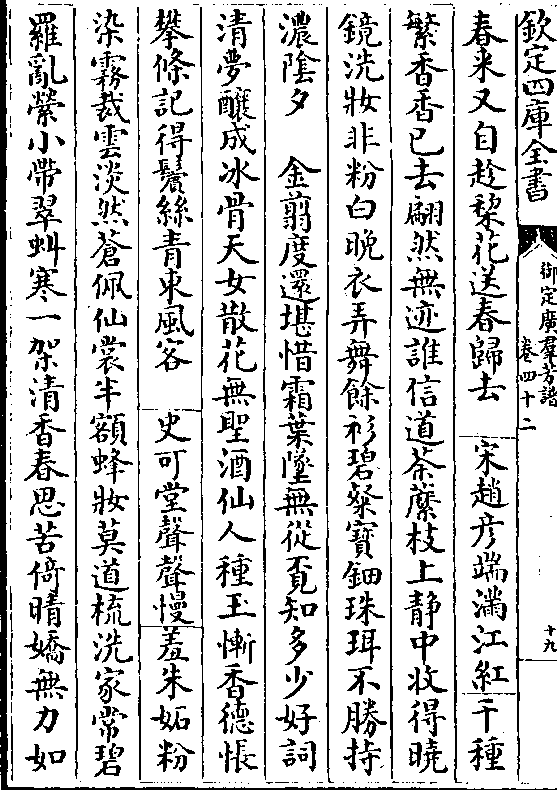 欽定四庫全書
御定廣羣芳譜
卷四十二
十九
春来又自趁棃花送春歸去　宋趙彥端滿江紅千種
繁香香已去翩然無迹誰信道荼蘼枝上静中收得曉
鏡洗妝非粉白晚衣弄舞餘衫碧粲寶鈿珠珥不勝持
濃陰夕　金翦度還堪惜霜葉墜無從覔知多少好詞
清夢釀成冰骨天女散花無聖酒仙人種玉慚香德悵
攀條記得鬢絲青東風客　史可堂聲聲慢羞朱妬粉
染霧裁雲淡然蒼佩仙裳半額蜂妝莫道梳洗家常碧
羅亂縈小帶翠虯寒一架清香春思苦倚晴嬌無力如